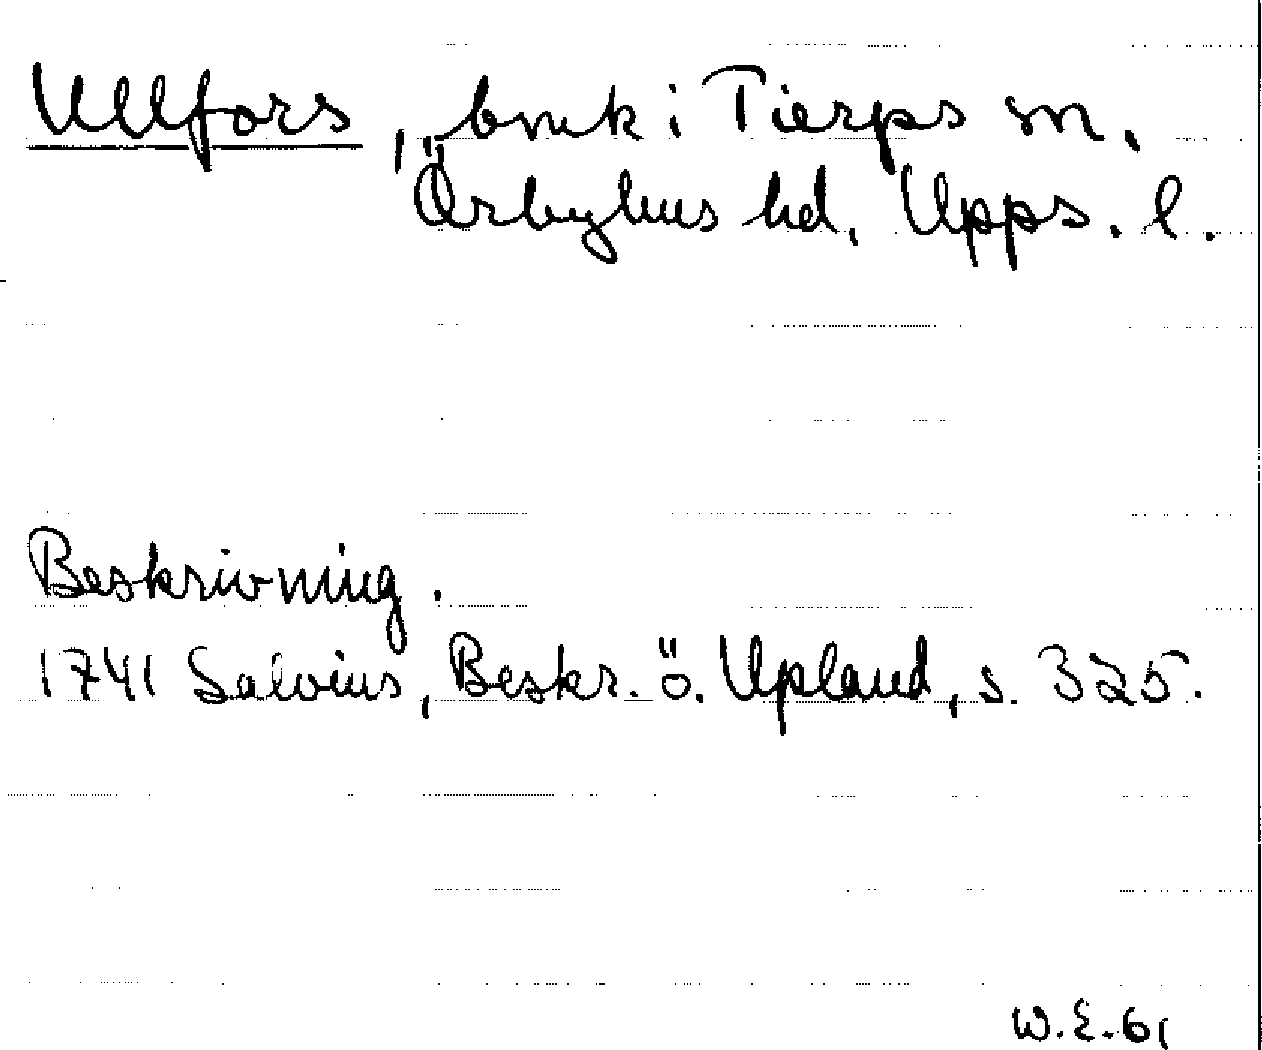 Ullfors, bruk i Tierps sn,
Örbyhus hd, Upps. l.
Beskrivning.
1741 Salvius, Beskr. ö. Upland, s. 325.
W.E. 61